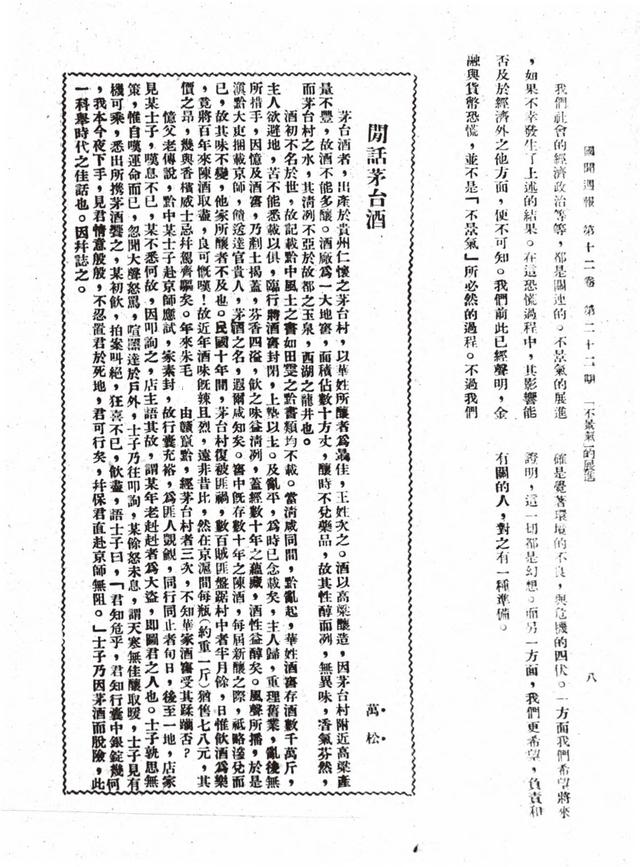 國聞週報 第十二卷 第二十二期 「不景氣」的展進 八
我們社會的經濟政治等等,都是關連的。不景氣的展進
,如果不幸發生了上述的結果。在這恐慌過程中,其影響能
否及於經濟外之他方面,便不可知。我們前此已經聲明,金
融與貨幣恐慌,並不是「不景氣」所必然的過程。不過我們
確是覺著環境的不良,與危機的四伏。一方面我們希望將來
證明,這一切都是幻想。而另一方面,我們更希望,負責和
有關的人,對之有一種準備。
閒話茅台酒
萬松
茅台酒者,出產於貴州仁懷之茅台村,以華姓所釀者爲最佳,王姓次之。酒以高粱釀造,因茅台村附近高粱產
量不豐,故酒不能多釀。酒廠爲一大地窖,面積佔數十方丈,釀時不兌藥品,故其性醇而冽,無異味,香氣芬然,
而茅台村之水,其清冽不亞於故都之玉泉,西湖之龍井也。
酒初不名於世,故記載黔中風土之書如田雯之黔書類均不載。當清咸同間,黔亂起,華姓酒窖存酒數千萬斤,
主人欲避地,苦不能悉載以俱,臨行將酒窖封閉,上塾以土。及亂平,爲時已念載矣,主人歸,重理舊業,亂後無
所措手,因憶及酒窖,乃剷土揭蓋,芬香四溢,飲之味益清冽,蓋經數十年之蘊藏,酒性益醇矣。風聲所播,於是
滇黔大吏捆載京師,餽送達官貴人,茅酒之名,遐爾咸知矣。窖中旣存數十年之陳酒,每屆新釀之際,祗略滲兌而
已,故其味不變,他家所釀者不及也。民國十年間,茅台村復被匪禍,數百賊匪盤踞村中者半月餘,日惟飲酒爲樂
,竟將百年來陳酒取盡,良可慨嘆!故近年酒味旣辣且烈,遠非昔比,然在京滬間每瓶(約重一斤)猶售七八元,其
價之昂,幾與香檳威士忌幷駕齊驅矣。年來朱毛 由贛竄黔,經茅台村者三次,不知華家酒窖受其蹂躪否?
憶父老傳說,黔中某士子赴京師應試,家素封,故行囊充裕,爲匪人覬覦,同行同止者旬日,後至一地,店家
見某士子,嘆息不已,某不悉何故,因叩詢之,店主語其故,謂某年老赳赳者爲大盜,即圖君之人也。士子孰思無
策,惟自嘆運命而已,忽聞大聲怒罵,喧鬧達於戶外,士子乃往叩詢,某餘怒未息,謂天寒無佳釀取暖,士子見有
機可乘,悉出所携茅酒饗之,某初飲,拍案叫絕,狂喜不已,飲盡,語士子曰,「君知危乎,君知行囊中銀錠幾何
,我本今夜下手,見君情意殷殷,不忍置君於死地,君可行矣,幷保君直赴京師無阻。」士子乃因茅酒而脫險,此
一科舉時代之佳話也。因幷誌之。